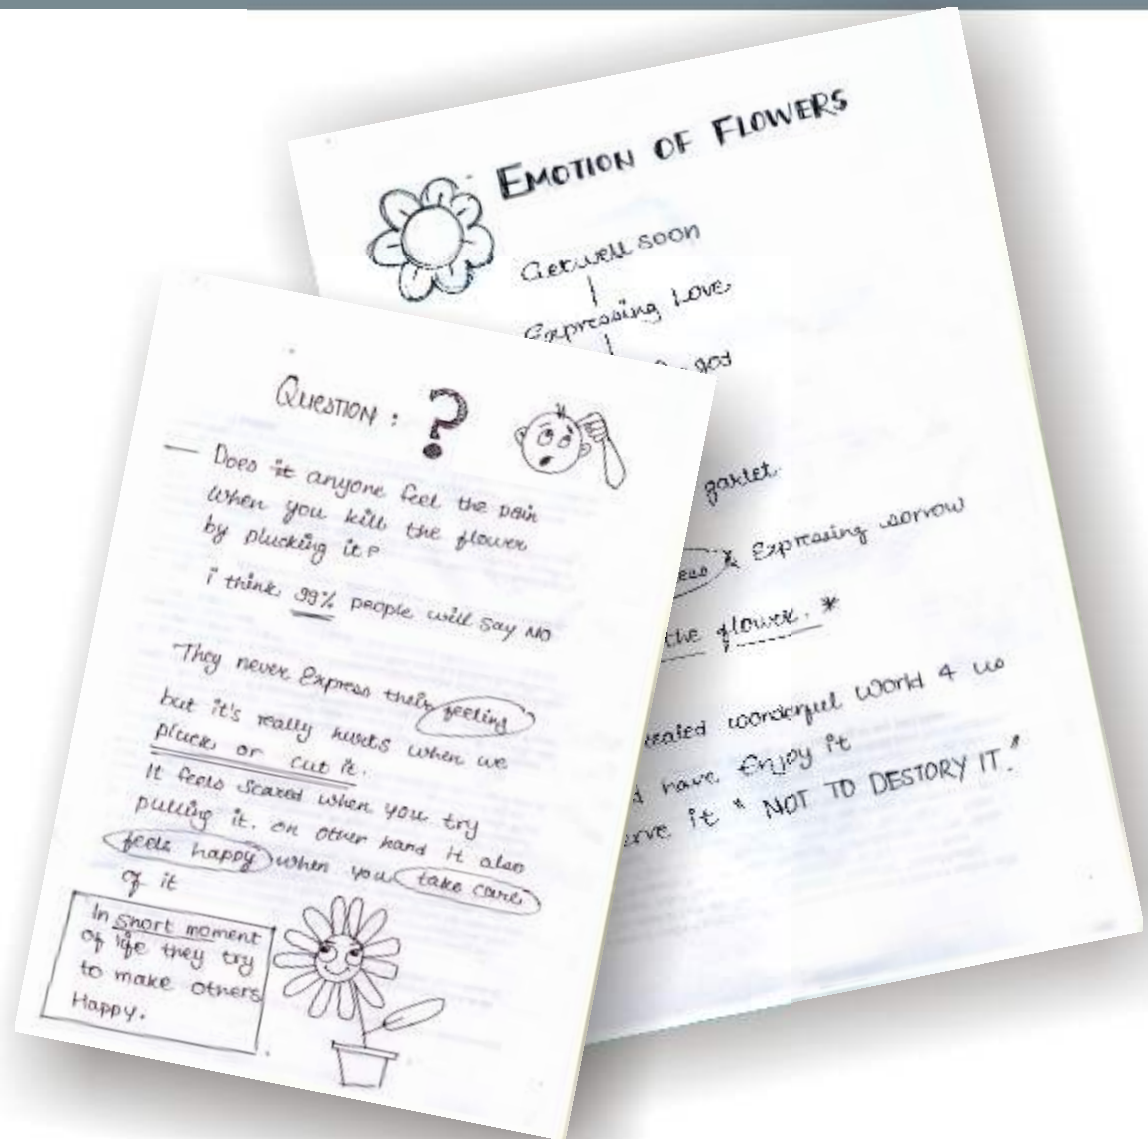 EMOTION OF FLOWERS
Getwell soon
Expressing Love
god
garlet.
& Expressing sorrow
the flower. *
wonderful world 4 us
have Enjoy it
it * NOT TO DESTORY IT.*
QUESTION : ?
— Does it anyone feel the pain
when you kill the flower
by plucking it?
i think 99% people will say NO
They never Express their feeling
but it's really hurts when we
pluck or cut it.
It feels scared when you try
pulling it. on other hand it also
feels happy when you take care
of it
In short moment
of life they try
to make others
Happy.